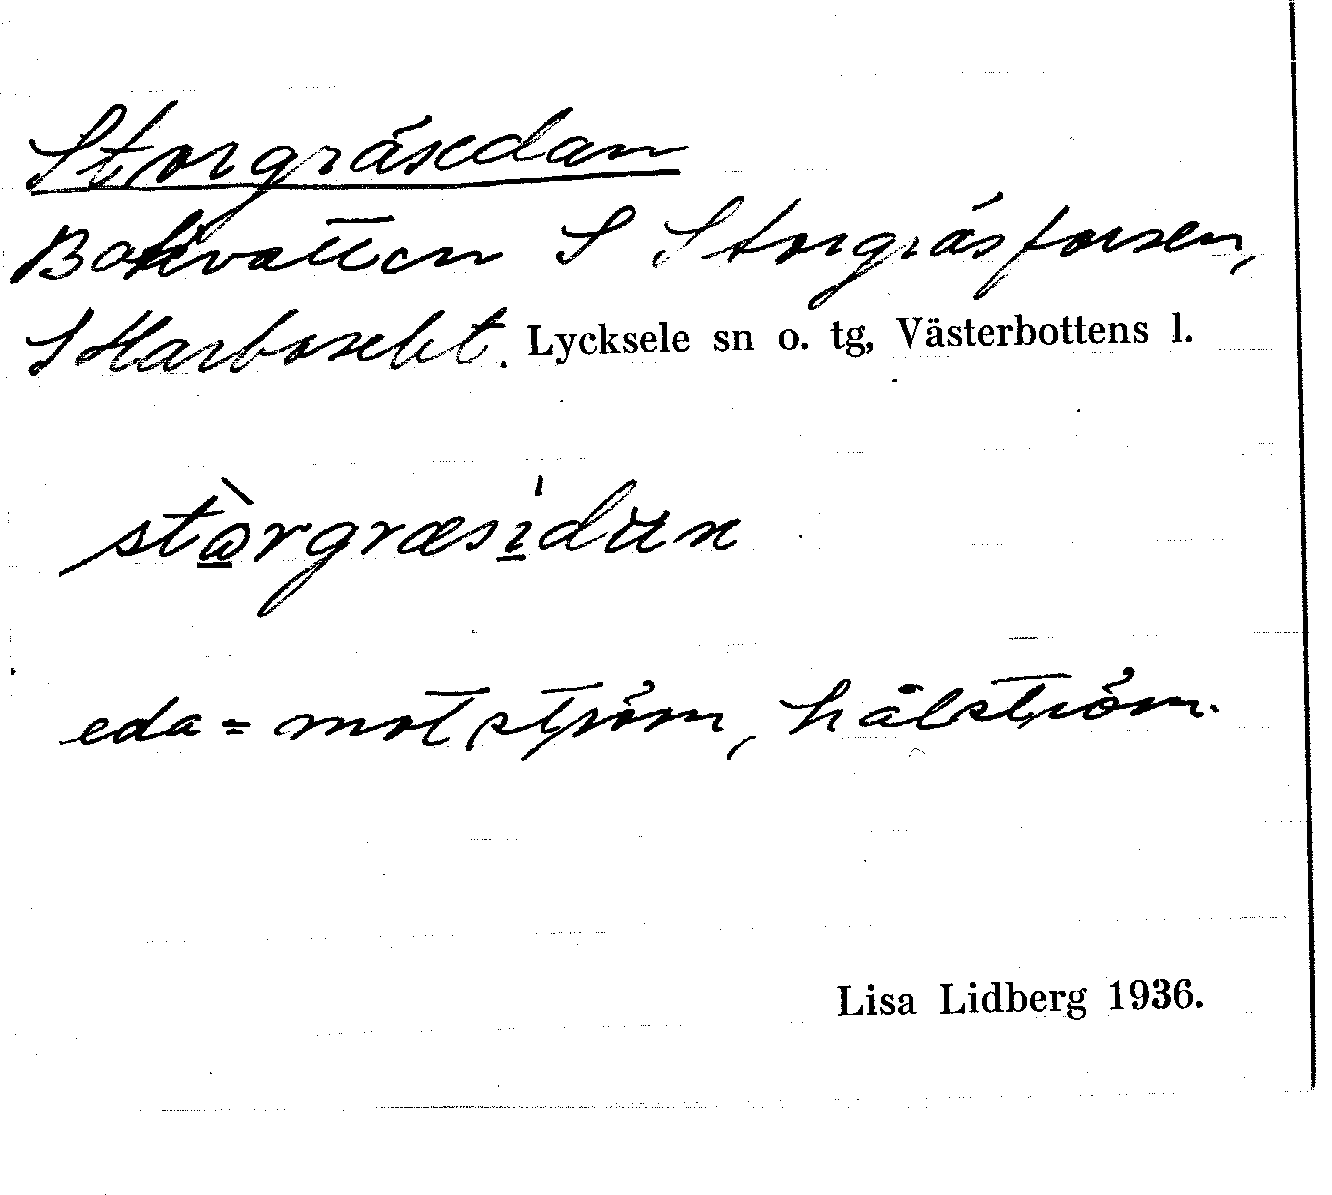 Storgräsedan
Bakvatten S Storgräsforsen,
S Harboselet. Lycksele sn o. tg, Västerbottens l.
stòrgræsidan
eda = motström, hålström.
Lisa Lidberg 1936.